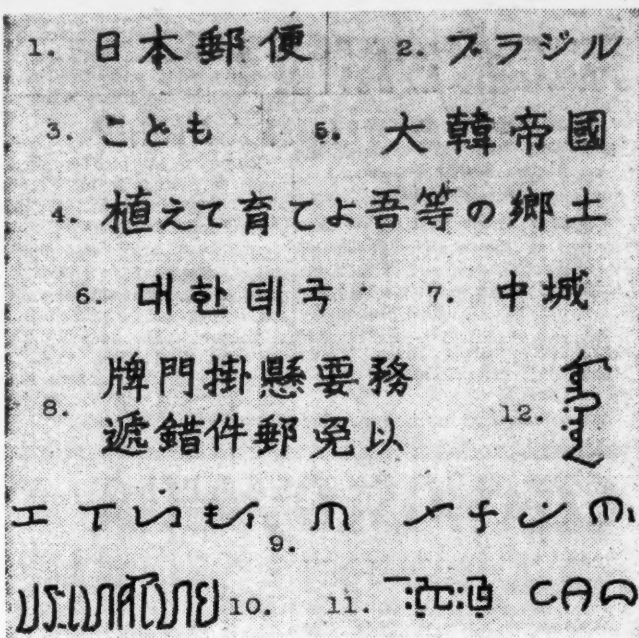 1. 日本郵便 2. ブラジル
3. こども 5. 大韓帝國
4. 植えて育てよ吾等の郷土
6. 대한뎨국 7. 中城
牌門掛懸要務
8. 12.
遞錯件郵免以
9.
ประเทศไทย 10. 11.